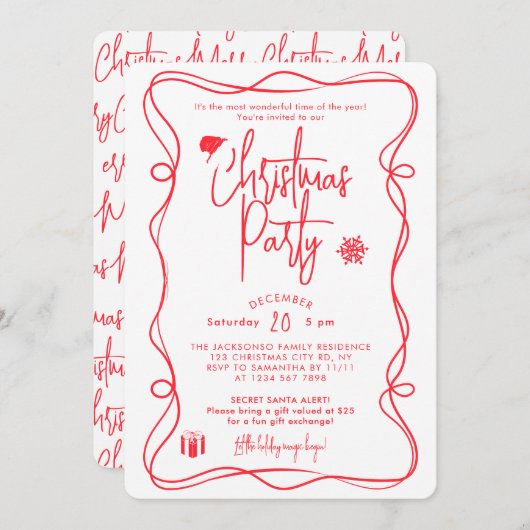 It's the most wonderful time of the year!
You're invited to our
Christmas
Party
DECEMBER
Saturday 20 5 pm
THE JACKSONSO FAMILY RESIDENCE
123 CHRISTMAS CITY RD, NY
RSVP TO SAMANTHA BY 11/11
AT 1234 567 7898
SECRET SANTA ALERT!
Please bring a gift valued at $25
for a fun gift exchange!
Let the holiday magic begin!